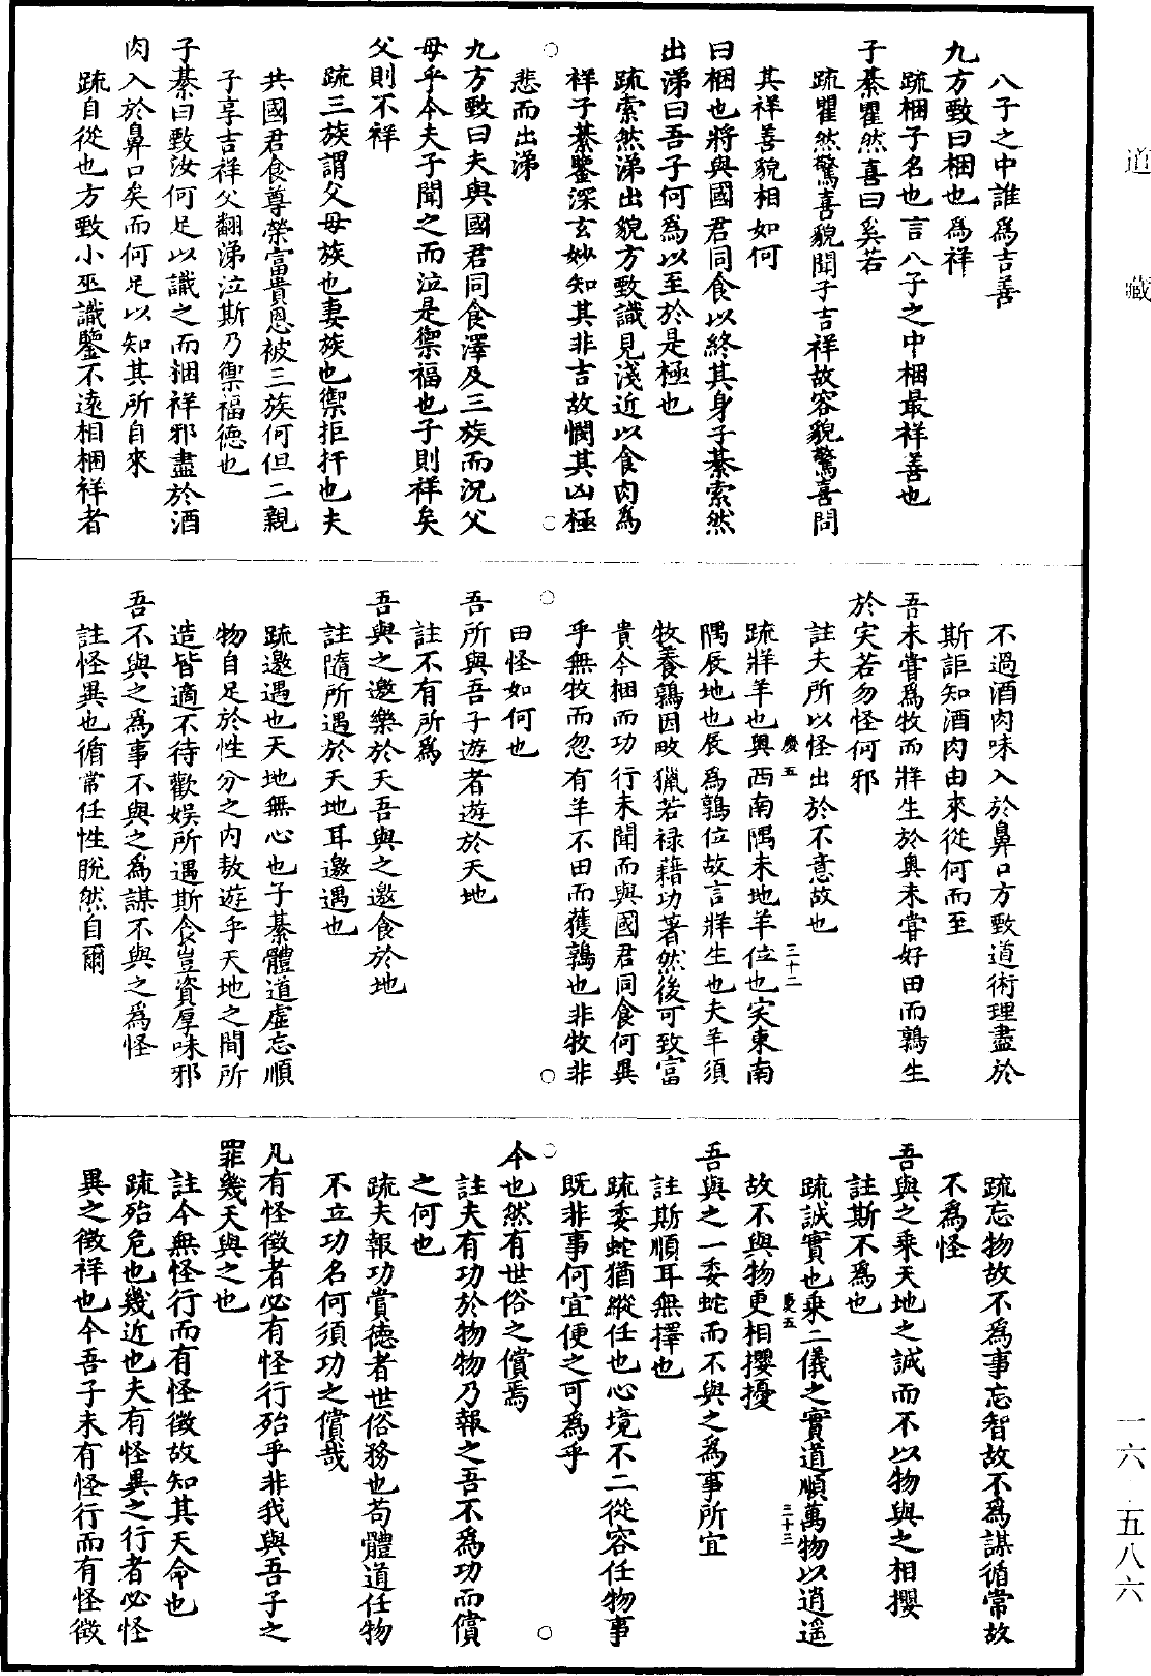 道藏
八子之中誰為吉善
九方歅曰梱也為祥
疏梱子名也言八子之中梱最祥善也
子綦瞿然喜曰奚若
疏瞿然驚喜貌聞子吉祥故容貌驚喜問
其祥善貌相如何
曰梱也將與國君同食以終其身子綦索然
出涕曰吾子何為以至於是極也
疏索然涕出貌方歅識見淺近以食肉為
祥子綦鑒深玄妙知其非吉故憫其凶極
悲而出涕
九方歅曰夫與國君同食澤及三族而況父
母乎今夫子聞之而泣是禦福也子則祥矣
父則不祥
疏三族謂父母族也妻族也禦拒扞也夫
共國君食尊榮富貴恩被三族何但二親
子享吉祥父翻涕泣斯乃禦福德也
子綦曰歅汝何足以識之而梱祥邪盡於酒
肉入於鼻口矣而何足以知其所自來
疏自從也方歅小巫識鑒不遠相梱祥者
不過酒肉味入於鼻口方歅道術理盡於
斯詎知酒肉由來從何而至
吾未嘗為牧而牂生於奧未嘗好田而鶉生
於宎若勿怪何邪
註夫所以怪出於不意故也
慶五
三十二
疏牂羊也奧西南隅未地羊位也宎東南
隅辰地也辰為鶉位故言牂生也夫羊須
牧養鶉因畋獵若祿藉功著然後可致富
貴今梱而功行未聞而與國君同食何異
乎無牧而忽有羊不田而獲鶉也非牧非
田怪如何也
吾所與吾子遊者遊於天地
註不有所為
吾與之邀樂於天吾與之邀食於地
註隨所遇於天地耳邀遇也
疏邀遇也天地無心也子綦體道虛忘順
物自足於性分之內敖遊乎天地之間所
造皆適不待歡娛所遇斯食豈資厚味邪
吾不與之為事不與之為謀不與之為怪
註怪異也循常任性脫然自爾
疏忘物故不為事忘智故不為謀循常故
不為怪
吾與之乘天地之誠而不以物與之相攖
註斯不為也
疏誠實也乘二儀之實道順萬物以逍遙
慶五
三十三
故不與物更相攖擾
吾與之一委蛇而不與之為事所宜
註斯順耳無擇也
疏委蛇猶縱任也心境不二從容任物事
既非事何宜便之可為乎
今也然有世俗之償焉
註夫有功於物物乃報之吾不為功而償
之何也
疏夫報功賞德者世俗務也苟體道任物
不立功名何須功之償哉
凡有怪徵者必有怪行殆乎非我與吾子之
罪幾天與之也
註今無怪行而有怪徵故知其天命也
疏殆危也幾近也夫有怪異之行者必怪
異之徵祥也今吾子未有怪行而有怪徵
一六·五八六